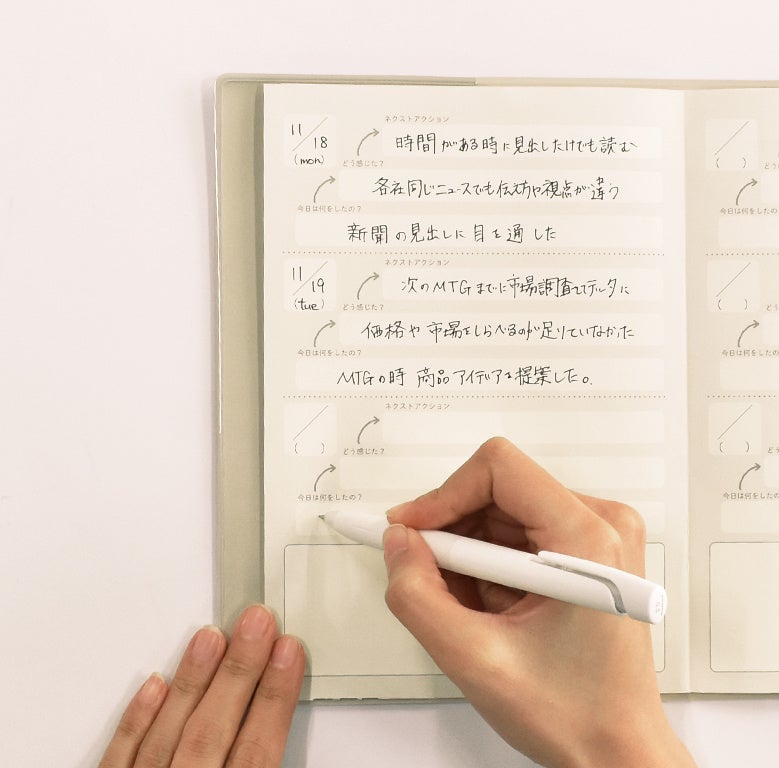 ネクストアクション
11/18
(mon)
時間がある時に見出しだけでも読む
どう感じた?
各社同じニュースでも伝え方や視点が違う
今日は何をしたの?
新聞の見出しに目を通した
ネクストアクション
11/19
(tue)
次のMTGまでに市場調査
どう感じた?
価格や市場をしらべるのが足りていなかった
今日は何をしたの?
MTGの時 商品アイデアを提案した。
ネクストアクション
/
( )
どう感じた?
今日は何をしたの?
/
( )
今日は何をしたの?
/
( )
今日は何をしたの?
/
( )
今日は何をしたの?